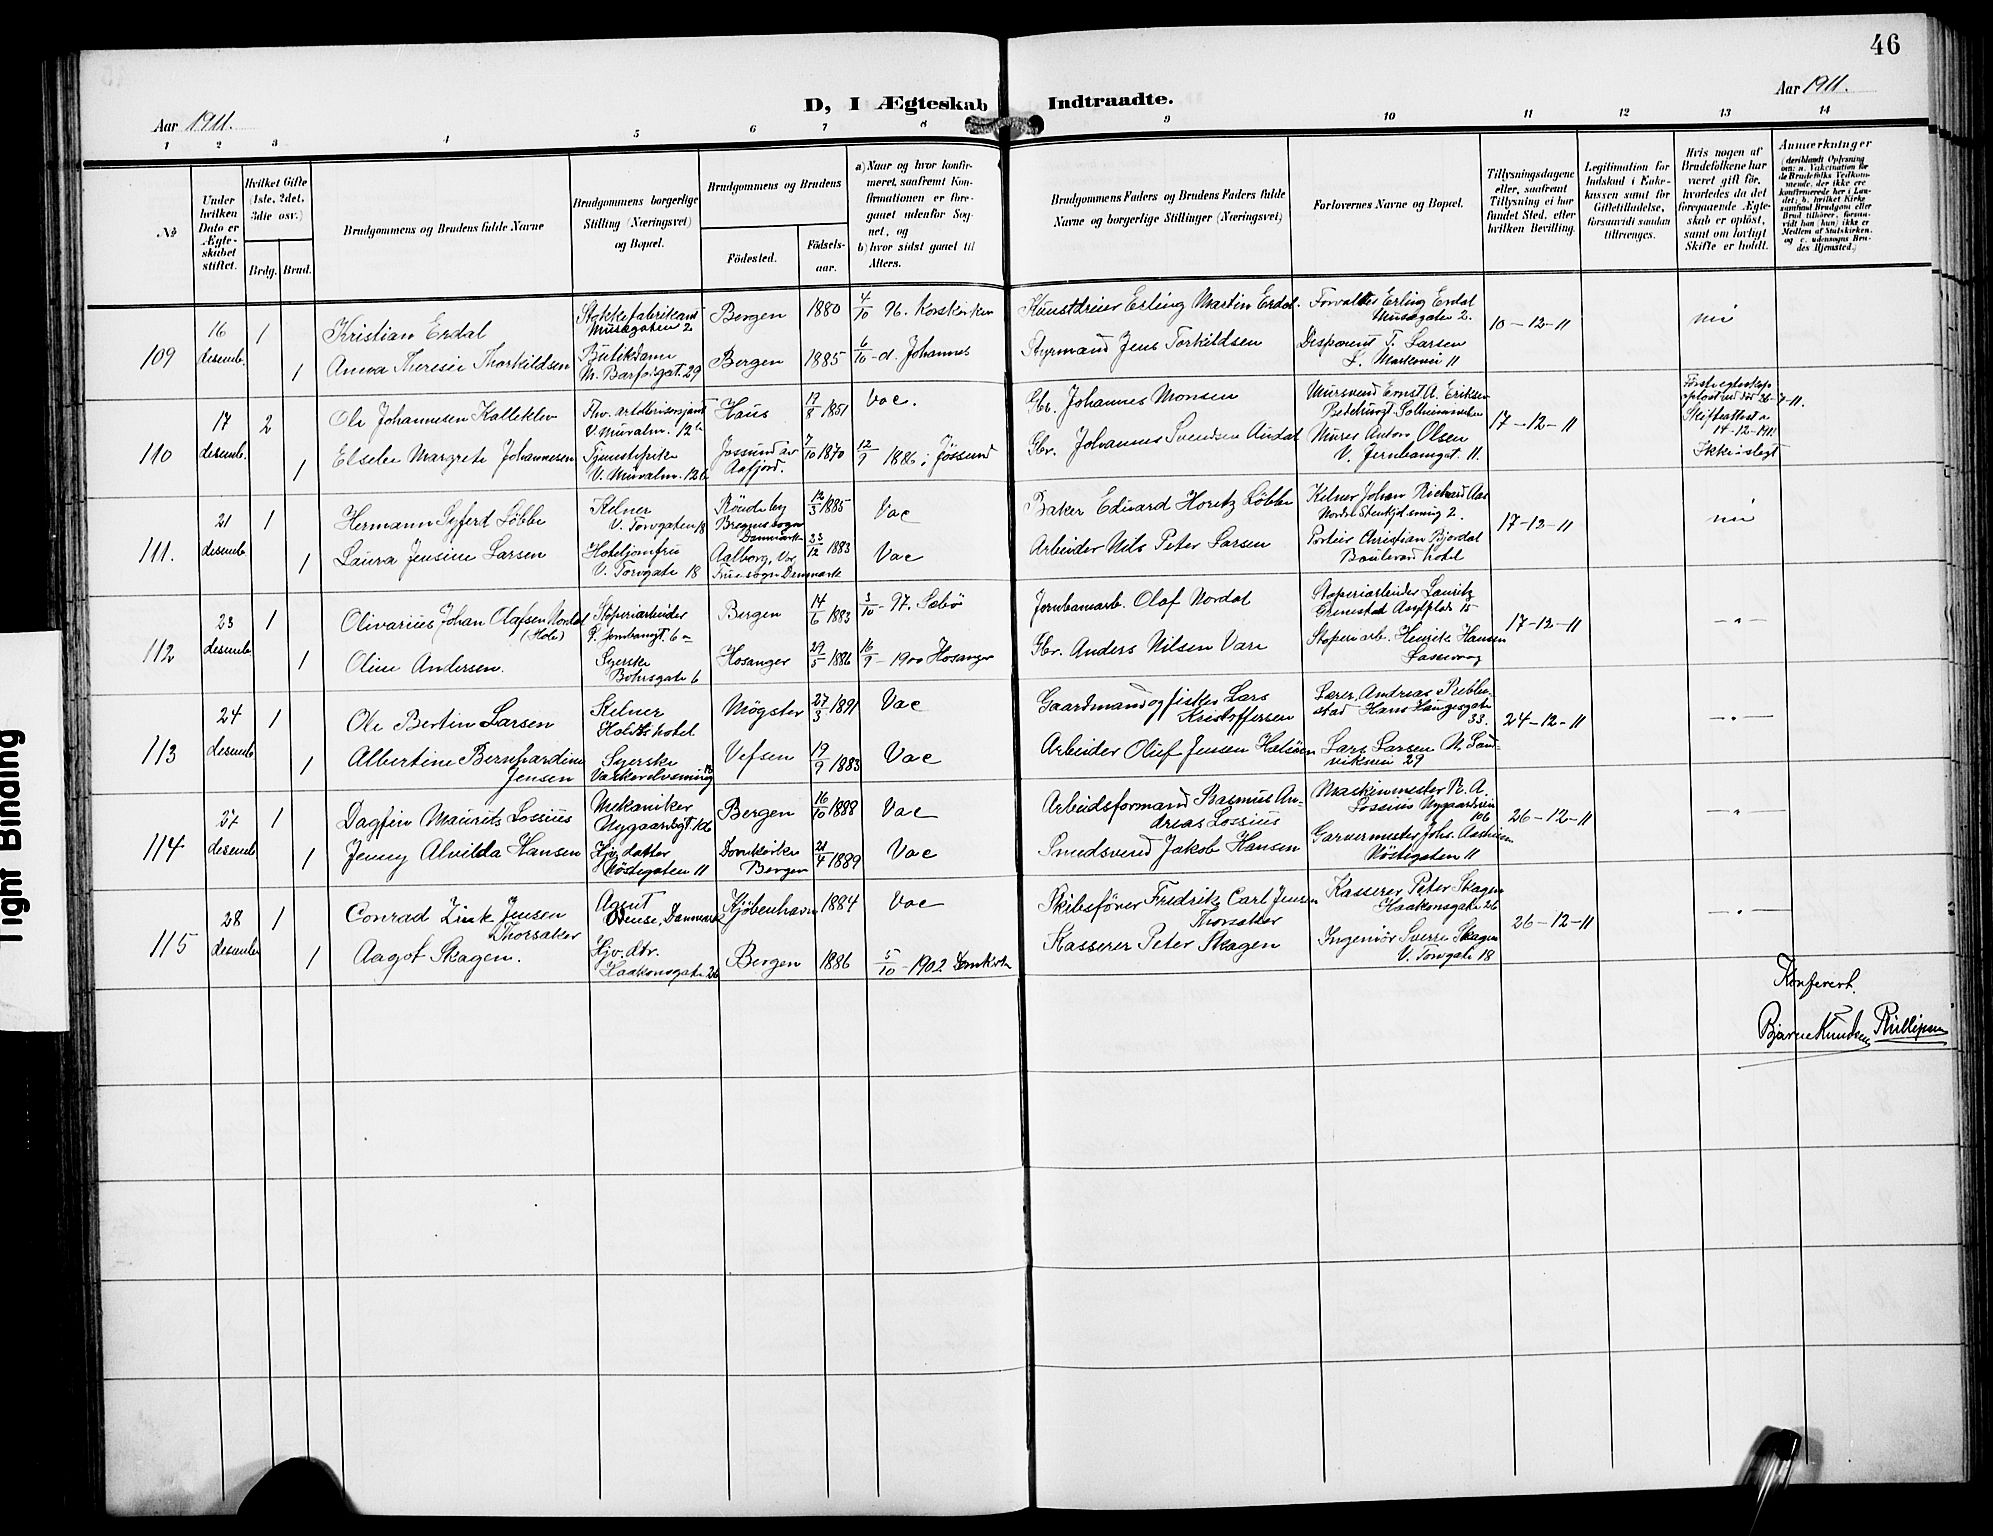 46
D, I Ægteskab Indtraadte.
Aar 1911. Aar 1911.
1 2 3 4 5 6 7 8 9 10 11 12 13 14
№
Under hvilken Dato er Ægteskabet stiftet.
Hvilket Gifte (1ste, 2det, 3die osv.)
Brdg. Brud.
Brudgommens og Brudens fulde Navne
Brudgommens borgerlige Stilling (Næringsvei) og Bopæl.
Brudgommens og Brudens
Födested. Födsels-aar.
a) Naar og hvor konfirmeret, saafremt Konfirmationen er foregaaet udenfor Sognet, og
b) hvor sidst gaaet til Alters.
Brudgommens Faders og Brudens Faders fulde Navne og borgerlige Stillinger (Næringsvei)
Forlovernes Navne og Bopæl.
Tillysningsdagene eller, saafremt Tillysning ei har fundet Sted, efter hvilken Bevilling.
Legitimation for Indskud i Enkekassen samt for Giftetilladelse, forsaavidt saadan tiltrænges.
Hvis nogen af Brudefolkene har været gift før, hvorledes da det foregaaende Ægteskab er opløst, samt om lovligt Skifte er holdt.
Anmærkninger
109 16 desemb. 1 Kristian Erdal Stokkefabrikant Musægaten 2 Bergen 1880 4/10 96. Korskirken Kunstdreier Erling Martin Erdal. Forvalter Erling Erdal Musægaten 2. 10-12-11 nei
1 Anna Theresie Thorkildsen Butikdame M. Barfodsgt. 29 Bergen 1885 6/10 - d. Johannes Styrmand Jens Torkildsen Disponent T. Larsen L. Markevei 11
110 17 desemb. 2 Ole Johannesen Kalleklev Fhv. artillerisersjant V. Muralm. 12b Haus 17/8 1851 Vac. Gbr. Johannes Monsen Mursvend Ernst A. Eriksen 17-12-11 Skifteattest 14-12-1911
1 Elsebe Margrete Johannesen Tjenestepike V. Muralm. 12b Aafjord. 7/10 1870 12/9 1886 i Jössund Gbr. Johannes Svendsen Murer Anton Olsen V. Jernbanegt. 11. Ikke i slegt
111. 21 desemb. 1 Hermann Syfert Löbbe Kelner V. Torvgaten 18 Danmark 12/3 1885 Vac Baker Eduard Löbbe Kelner Johan Richard Aas 2. 17-12-11 nei
1 Laura Jensine Larsen Hoteljomfru V. Torvgate 18 Aalborg, Vor Frue sogn Danmark 23/12 1883 Vac Arbeider Nils Peter Larsen Portier Christian Bjordal Boulevard hotel
112 23 desemb. 1 Olivarius Johan Olafsen Nordal (Hole) Stoperiarbeider Jernbanegt. 6 a Bergen 14/6 1883 3/10 - 97. Sæbö Jernbanearb. Olaf Nordal Stoperiarbeider Lauritz Grimstad Asylplads 15 17-12-11 - " -
1 Oline Andersen. Syerske Bohrsgate 6 Hosanger 29/5 1886 16/9 - 1900 Hosanger Gbr. Anders Nilsen Stoperiarb. Henrik Hansen Laksevaag
113 24 desemb. 1 Ole Bertin Larsen Kelner Holdts hotel Møgster 27/3 1891 Vac Gaardmand og fisker Lars Kristoffersen Lærer Andreas Hans Haugesgate 33. 24-12-11 - " -
1 Albertine Bernhardine Jensen Syerske Vefsen 19/9 1883 Vac Arbeider Oluf Jensen Lars Larsen N. Sandviksvei 29
114 27 desemb. 1 Dagfin Maurits Lossius Mekaniker Nygaardsgt. 106 Bergen 16/10 1888 Vac Arbeidsformand Rasmus Andreas Lossius Maskinmester R. A. Lossius Nygaardsvei 106 26-12-11 - " -
1 Jenny Alvilda Hansen Hjv. datter Nöstegaten 11 Domkirke Bergen 21/4 1889 Vac Smedsvend Jakob Hansen Garvermester Johs. Nöstegaten 11
115 28 desemb. 1 Conrad Zink Jensen Thorsaker Agent Odense, Danmark Kjöbenhavn 1884 Vac Skibsfører Fredrik Carl Jensen Thorsaker Kasserer Peter Skagen Haakonsgate 26 26-12-11 - " -
1 Aagot Skagen. Hjv. dtr. Haakonsgate 26 Bergen 1886 5/10 - 1902 Domkirke Kasserer Peter Skagen Ingeniör Sverre Skagen V. Torvgate 18
Konferert.
Bjarne Knudsen Phillipsen
Tight Binding